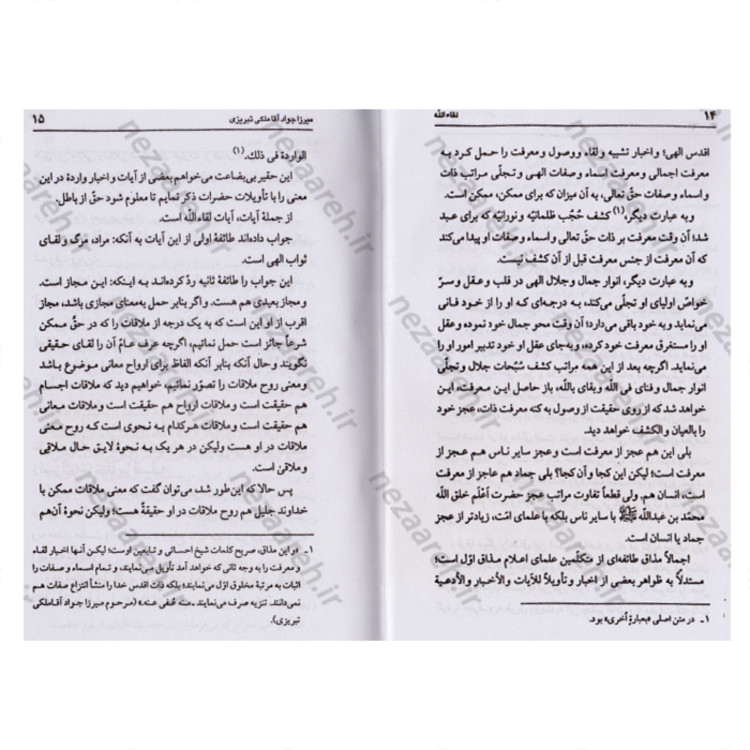 ۱۴
لقاءالله
اقدس الهی؛ و اخبار تشبیه و لقاء و وصول و معرفت را حمل کرد به
معرفت اجمالی و معرفت اسماء و صفات الهی و تجلّی مراتب ذات
و اسماء و صفات حقّ تعالی، به آن میزان که برای ممکن، ممکن است.
و به عبارت دیگر،(۱) کشف حُجُب ظلمانیّه و نورانیّه که برای عبد
شد؛ آن وقت معرفت بر ذات حقّ تعالی و اسماء و صفات او پیدا می‌کند
که آن معرفت از جنس معرفت قبل از آن کشف نیست.
و به عبارت دیگر، انوار جمال و جلال الهی در قلب و عقل و سرّ
خواصّ اولیای او تجلّی می‌کند، به درجه‌ای که او را از خود فانی
می‌نماید و به خود باقی می‌دارد؛ آن وقت محو جمال خود نموده و عقل
او را مستغرق معرفت خود کرده، و به‌جای عقل او خود تدبیر امور او را
می‌نماید. اگرچه بعد از این همه مراتب کشف سُبُحات جلال و تجلّی
انوار جمال و فنای فی الله و بقای بالله، باز حاصل این معرفت، این
خواهد شد که از روی حقیقت از وصول به کنه معرفت ذات، عجز خود
را بالعیان و الکشف خواهد دید.
بلی این هم عجز از معرفت است و عجز سایر ناس هم عجز از
معرفت است؛ لیکن این کجا و آن کجا؟ بلی جماد هم عاجز از معرفت
است، انسان هم. ولی قطعاً تفاوت مراتب عجز حضرت أعْلَم خلق الله
محمّد بن عبدالله ﷺ با سایر ناس بلکه با علمای امّت، زیادتر از عجز
جماد با انسان است.
اجمالاً مذاق طائفه‌ای از متکلّمین علمای اعلام مذاق اوّل است؛
مستدلاً به ظواهر بعضی از اخبار و تأویلاً للآیات و الأخبار و الأدعیة
۱ ـ در متن اصلی «بعبارة اُخری» بود.
میرزا جواد آقا ملکی تبریزی
۱۵
الواردة فی ذلک.(۱)
این حقیر بی‌بضاعت می‌خواهم بعضی از آیات و اخبار واردة در این
معنی را با تأویلات حضرات ذکر نمایم تا معلوم شود حقّ از باطل.
از جملهٔ آیات، آیات لقاءالله است.
جواب داده‌اند طائفهٔ اولی از این آیات به آنکه: مراد، مرگ و لقای
ثواب الهی است.
این جواب را طائفهٔ ثانیه ردّ کرده‌اند به اینکه: این مجاز است.
و مجاز بعیدی هم هست. و اگر بنابر حمل به‌معنای مجازی باشد، مجاز
اقرب از او این است که به یک درجه از ملاقات را که در حقّ ممکن
شرعاً جائز است حمل نمائیم، اگرچه عرف عامّ آن را لقای حقیقی
نگویند و حال آنکه بنابر آنکه الفاظ برای ارواح معانی موضوع باشد
و معنی روح ملاقات را تصوّر نمائیم، خواهیم دید که ملاقات اجسام
هم حقیقت است و ملاقات ارواح هم حقیقت است و ملاقات معانی
هم حقیقت است و ملاقات هرکدام به نحوی است که روح معنی
ملاقات در او هست ولیکن در هر یک به نحوهٔ لایق حال ملاقِی
و ملاقیٰ است.
پس حالا که این‌طور شد، می‌توان گفت که معنی ملاقات ممکن با
خداوند جلیل هم روح ملاقات در او حقیقةً هست؛ ولیکن نحوهٔ آن هم
۱ ـ «و این مذاق، صریح کلمات شیخ احسائی و تابعین اوست؛ لیکن آنها اخبار لقاء
و معرفت را به وجه ثانی که خواهد آمد تأویل می‌نمایند، و تمام اسماء و صفات را
اثبات به مرتبهٔ مخلوق اوّل می‌نمایند؛ بلکه ذات اقدس خدا را منشأ انتزاع صفات هم
نمی‌دانند. تنزیه صرف می‌نمایند ـ منه عُفی عنه» (مرحوم میرزا جواد آقا ملکی
تبریزی)
nezaareh.ir